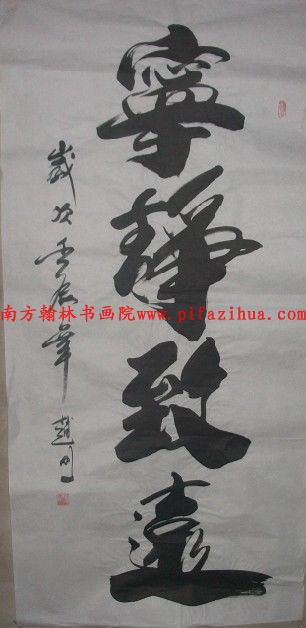 寧靜致遠
歲次壬辰年
趙
南方翰林书画院www.pifazihua.com